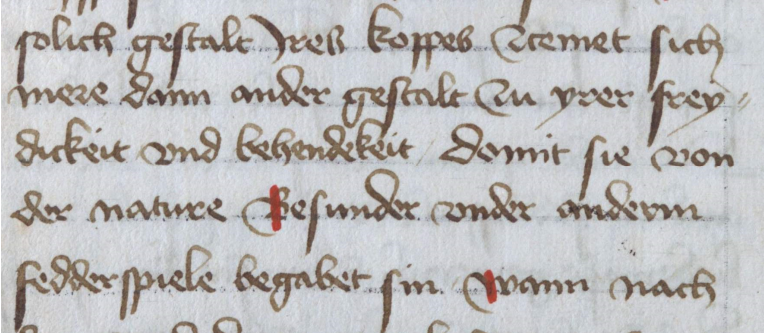 solich gestalt Jres koppes Zcemet sich
mere dann ander gestalt Zu yrer frey-
dickeit vnd behendekeit / Domit sie von
der nature Besunder vnder anderm
fedderspiele begabet sin Wann nach